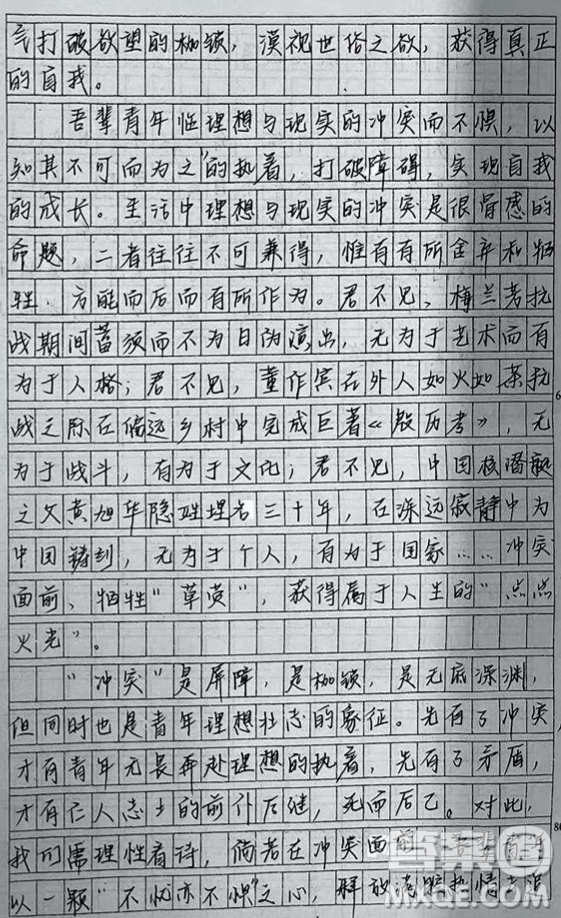 气打破欲望的枷锁，漠视世俗之欲，获得真正
的自我。
吾辈青年临理想与现实的冲突而不惧，以
知其不可而为之"的执着，打破障碍，实现自我
的成长。生活中理想与现实的冲突是很骨感的
命题，二者往往不可兼得，惟有有所舍弃和牺
牲，方能而后而有所作为。君不见，梅兰芳抗
战期间蓄须而不为日伪演出，无为于艺术而有
为于人格；君不见，董作宾在外人如火如荼抗
战之际在偏远乡村中完成巨著《殷历考》，无
为于战斗，有为于文化；君不见，中国核潜艇
之父黄旭华隐姓埋名三十年，在深远寂静中为
中国铸剑，无为于个人，有为于国家……冲突
面前，牺牲"草莫"，获得属于人生的"点点
火光"。
"冲突"是屏障，是枷锁，是无底深渊，
但同时也是青年理想壮志的象征。先有了冲突，
才有青年无畏奔赴理想的执着，先有了矛盾，
才有仁人志士的前仆后继，死而后已。对此，
我们需理性看待，倘若在冲突面前
以一颗"不忧亦不惧"之心，释放满腔热情去
答案圈
MXQE.COM